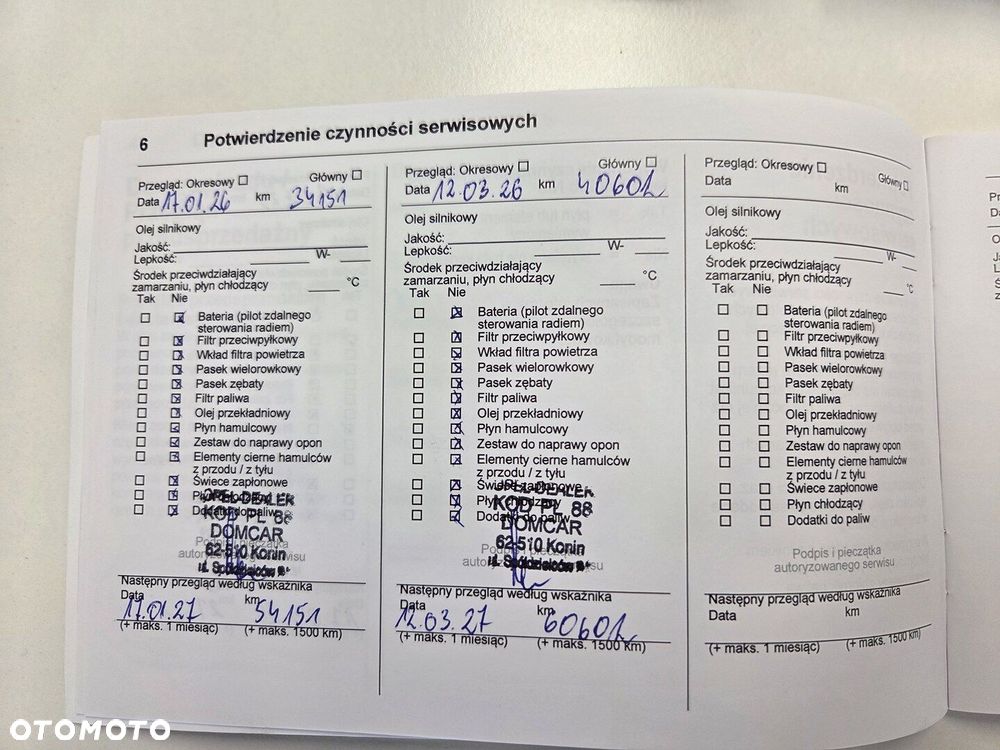 6 Potwierdzenie czynności serwisowych
Przegląd: Okresowy ☐ Główny ☐
Data 17.01.26 km 34151
Olej silnikowy
Jakość:
Lepkość: W-
Środek przeciwdziałający
zamarzaniu, płyn chłodzący °C
Tak Nie
Bateria (pilot zdalnego
sterowania radiem)
Filtr przeciwpyłkowy
Wkład filtra powietrza
Pasek wielorowkowy
Pasek zębaty
Filtr paliwa
Olej przekładniowy
Płyn hamulcowy
Zestaw do naprawy opon
Elementy cierne hamulców
z przodu / z tyłu
Świece zapłonowe
OPEL DEALER
KOD PL 88
DOMCAR
62-510 Konin
Podpis i pieczątka
autoryzowanego serwisu
Następny przegląd według wskaźnika
Data km
17.01.27 54151
(+ maks. 1 miesiąc) (+ maks. 1500 km)
Przegląd: Okresowy ☐ Główny ☐
Data 12.03.26 km 40602
Olej silnikowy
Jakość:
Lepkość: W-
Środek przeciwdziałający
zamarzaniu, płyn chłodzący °C
Tak Nie
Bateria (pilot zdalnego
sterowania radiem)
Filtr przeciwpyłkowy
Wkład filtra powietrza
Pasek wielorowkowy
Pasek zębaty
Filtr paliwa
Olej przekładniowy
Płyn hamulcowy
Zestaw do naprawy opon
Elementy cierne hamulców
z przodu / z tyłu
Świece zapłonowe
Płyn chłodzący
Dodatki do paliw
OPEL DEALER
KOD PL 88
DOMCAR
62-510 Konin
Podpis i pieczątka
Następny przegląd według wskaźnika
Data km
12.03.27 60602
(+ maks. 1 miesiąc) (+ maks. 1500 km)
Przegląd: Okresowy ☐ Główny ☐
Data km
Olej silnikowy
Jakość:
Lepkość: W-
Środek przeciwdziałający
zamarzaniu, płyn chłodzący °C
Tak Nie
Bateria (pilot zdalnego
sterowania radiem)
Filtr przeciwpyłkowy
Wkład filtra powietrza
Pasek wielorowkowy
Pasek zębaty
Filtr paliwa
Olej przekładniowy
Płyn hamulcowy
Zestaw do naprawy opon
Elementy cierne hamulców
z przodu / z tyłu
Świece zapłonowe
Płyn chłodzący
Dodatki do paliw
Podpis i pieczątka
autoryzowanego serwisu
Następny przegląd według wskaźnika
Data km
(+ maks. 1 miesiąc) (+ maks. 1500 km)
OTOMOTO